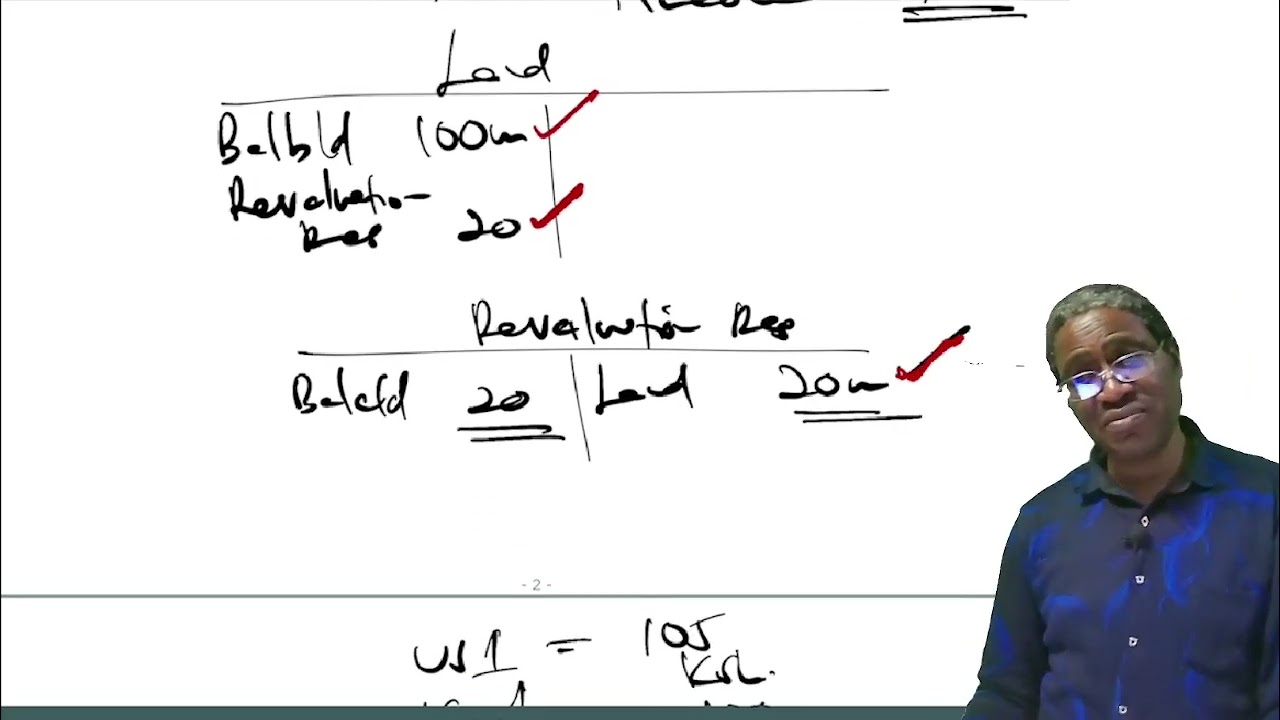 Land
Bal b/d 100m
Revaluation
Res 20
Revaluation Res
Bal c/d 20 Land 20m
- 2 -
US 1 = 105
Ksh.